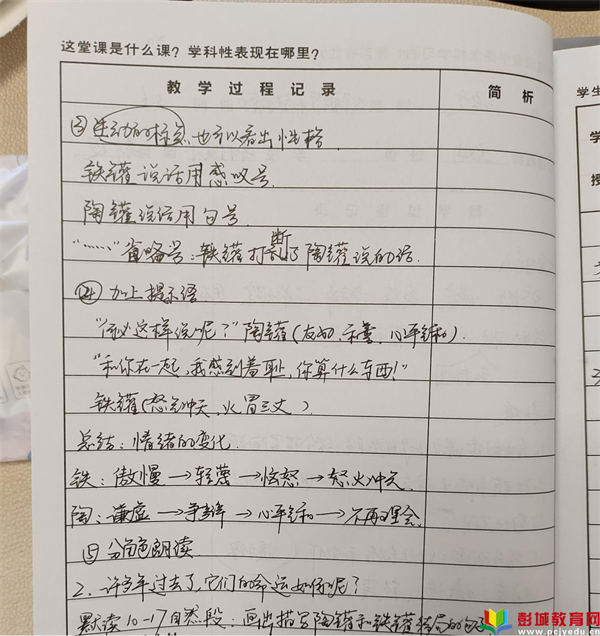 这堂课是什么课？学科性表现在哪里？
教学过程记录
简析
③生动的标点也可以看出性格
铁罐说话用感叹号.
陶罐说话用句号.
“……”省略号：铁罐打断了陶罐说的话.
④加上提示语
“何必这样说呢？”陶罐（友好、，心平气和）.
“和你在一起，我感到羞耻，你算什么东西！”
铁罐（怒气冲天，火冒三丈）
总结：情绪的变化.
铁：傲慢→轻蔑→恼怒→怒火冲天
陶：谦虚→争辩→心平气和→不再理会.
⑤分角色朗读.
2、许多年过去了，它们的命运如何呢？
默读10-17自然段：画出描写陶罐和铁罐结局的句子
学生
学
授
彭城教育网
www.pcjyedu.cn